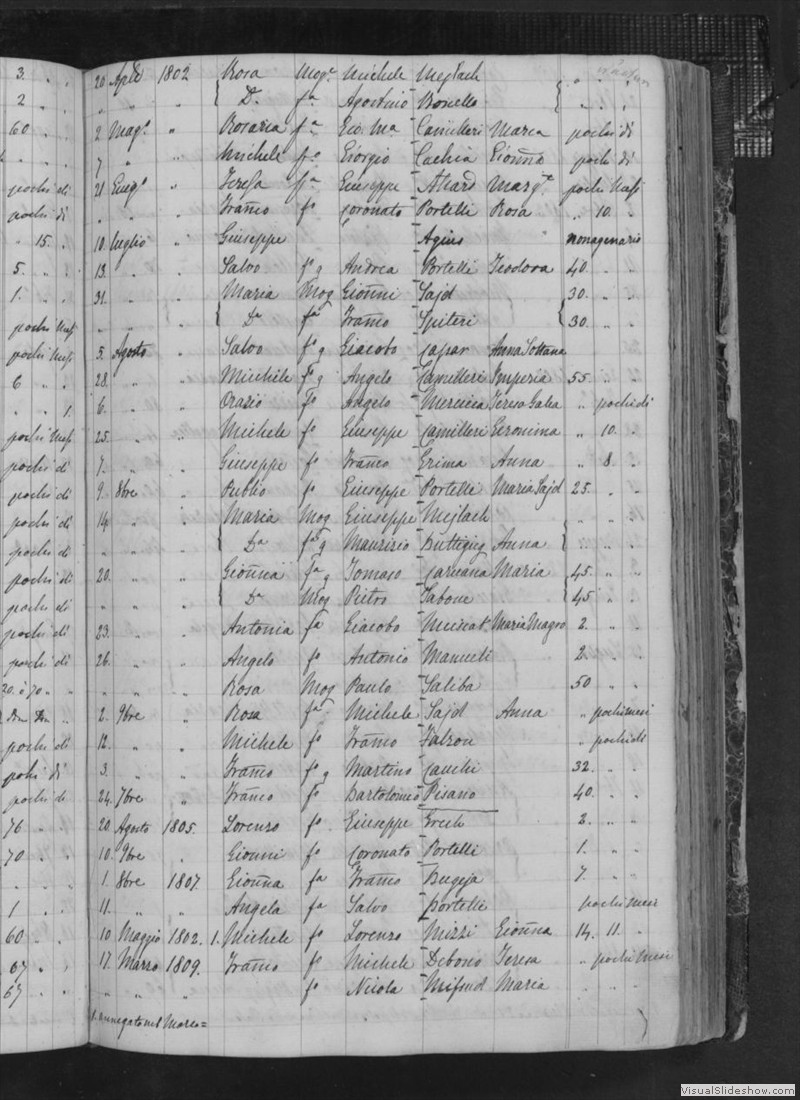 3. 20 Aple 1802 Rosa Mogе Michele Mejlach
2 " " " { Da fa Agostino Bonello { " " "
60 2 Maga " Rosaria fa Gio. Ma Camilleri Marea pochi di
7 " " Michele fo Giorgio Cachia Gionna pochi di
pochi di 21 Giuga " Teresa fa Giuseppe Attard Marga pochi Mesi
pochi di " " " Franco fo Coronato Portelli Rosa " 10. "
" 15. 10. luglio " Giuseppe Agius nonagenario
5. 13. " " Salvo fo g Andrea Portelli Teodora 40. " "
1. 31. " " Maria Mog Gionni Sajd 30. " "
pochi Mesi " " " { Da fa Franco Spiteri { 30. " "
pochi Mesi 5. Agosto " Salvo fo g Giacobo Capar Anna Sottana
6 28. " " Michele fo g Angelo Camilleri Imperia 55 " "
" " 1. 6. " " Orazio fo Angelo Mercieca Teresa Galea " pochi di
pochi Mesi 25. " " Michele fo Giuseppe Camilleri Geronima " 10. "
pochi di 7. " " Giuseppe fo Franco Grima Anna " 8. "
pochi di 9. 8bre " Publio fo Giuseppe Portelli Maria Sajd 25. " "
pochi di 14. " " Maria Mog Giuseppe Mejlach " " "
pochi di { Da fa g Maurizio Buttigieg Anna { " " "
pochi di 20. " " Gionna fa g Tomaso Caruana Maria 45. " "
pochi di " " " { Da Mog Pietro Tabone { 45. " "
pochi di 23. " " Antonia fa Giacobo Muscat Maria Magro 2. " "
pochi di 26. " " Angelo fo Antonio Manueli 2. " "
20. o 70 " " " Rosa Mog Paulo Saliba 50 " "
2. 9bre " Rosa fa Michele Sajd Anna " pochi mesi
pochi di 12. " " Michele fo Franco Falzon " pochi di
pochi di 3. " " Franco fo g Martino Cauchi 32. " "
pochi di 24. 7bre " Franco fo Bartolomeo Pisano 40. " "
76 20. Agosto 1805. Lorenzo fo Giuseppe Grech 2. " "
70. 10. 9bre " Gionni fo Coronato Portelli 1. " "
1. 8bre 1807. Gionna fa Franco Bugeja 7. " "
1 11. " " Angela fa Salvo Portelli pochi mesi
60 10 Maggio 1802. 1. Michele fo Lorenzo Mizzi Gionna 14. 11. "
67 17. Marzo 1809. Franco fo Michele Debono Teresa " pochi Mesi
67 " " " fo Nicola Mifsud Maria " " "
1. Annegato nel Mare =
VisualSlideshow.com